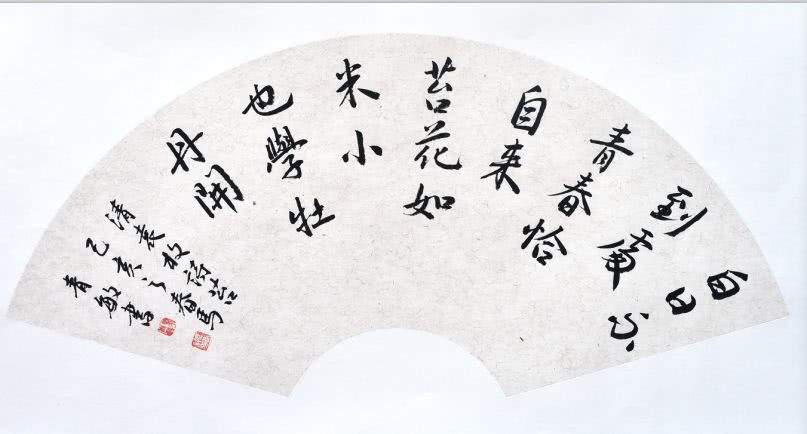 白日不
到處
青春恰
自来
苔花如
米小
也學牡
丹開
清袁枚詩苔
己亥之春馬
青敏書